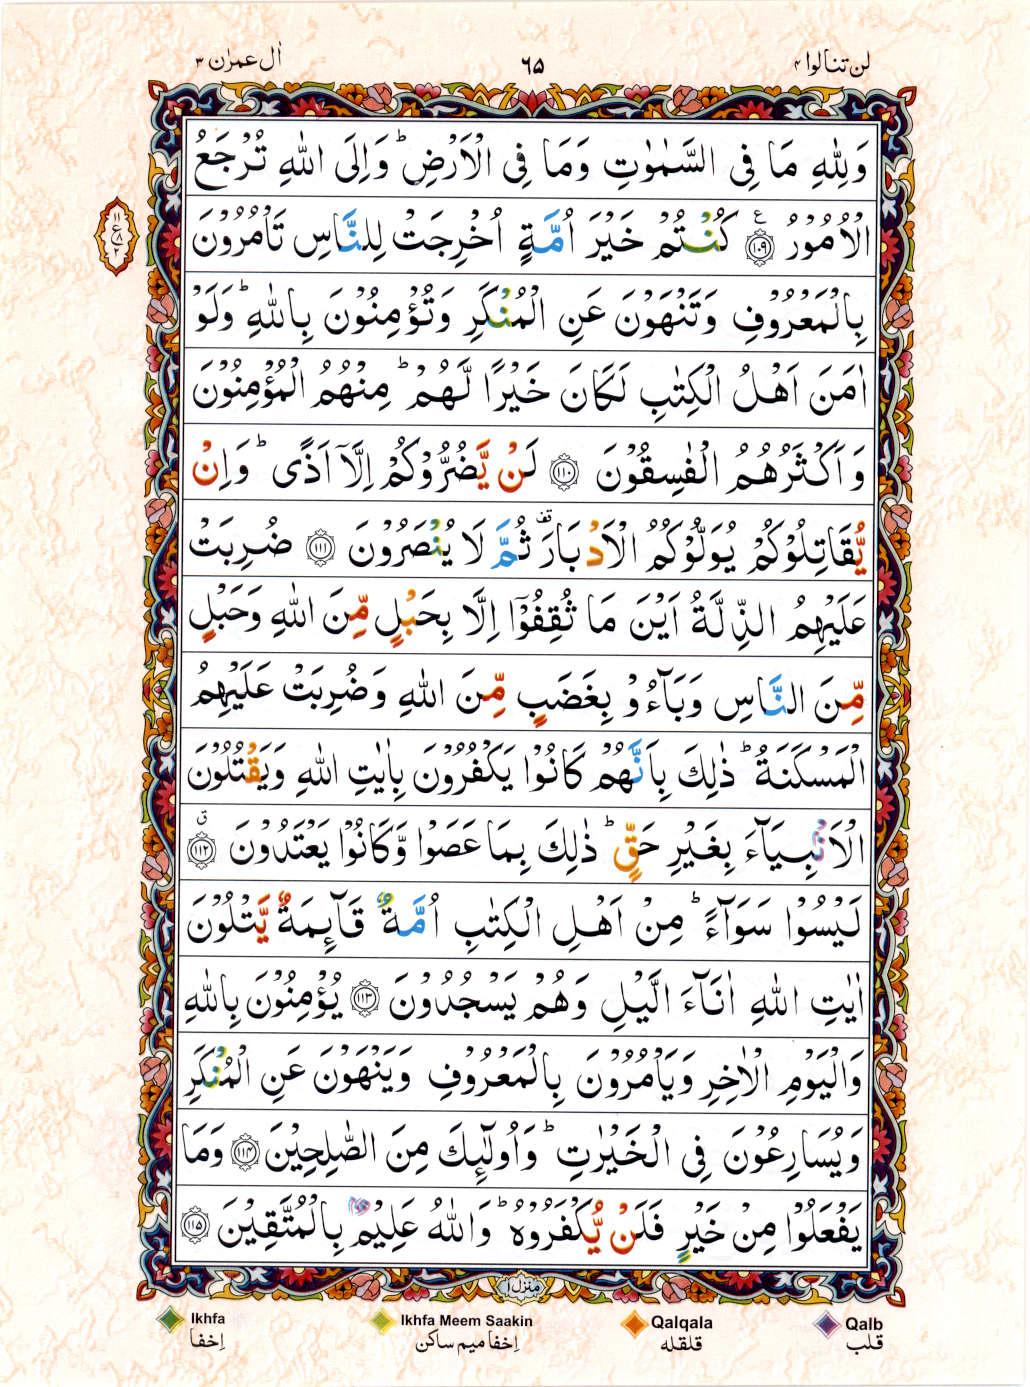 لن تنالوا ۴
٦٥
اٰل عمرٰن ۳
وَلِلّٰهِ مَا فِى السَّمٰوٰتِ وَمَا فِى الْاَرْضِ ؕ وَاِلَى اللّٰهِ تُرْجَعُ
الْاُمُوْرُ ﴿۱۰۹﴾ ع كُنْتُمْ خَيْرَ اُمَّةٍ اُخْرِجَتْ لِلنَّاسِ تَاْمُرُوْنَ
۱۱ ع ۸ ۲
بِالْمَعْرُوْفِ وَتَنْهَوْنَ عَنِ الْمُنْكَرِ وَتُؤْمِنُوْنَ بِاللّٰهِ ؕ وَلَوْ
اٰمَنَ اَهْلُ الْكِتٰبِ لَكَانَ خَيْرًا لَّهُمْ ؕ مِنْهُمُ الْمُؤْمِنُوْنَ
وَاَكْثَرُهُمُ الْفٰسِقُوْنَ ﴿۱۱۰﴾ لَنْ يَّضُرُّوْكُمْ اِلَّاۤ اَذًى ؕ وَاِنْ
يُّقَاتِلُوْكُمْ يُوَلُّوْكُمُ الْاَدْبَارَ ۟ ثُمَّ لَا يُنْصَرُوْنَ ﴿۱۱۱﴾ ضُرِبَتْ
عَلَيْهِمُ الذِّلَّةُ اَيْنَ مَا ثُقِفُوْۤا اِلَّا بِحَبْلٍ مِّنَ اللّٰهِ وَحَبْلٍ
مِّنَ النَّاسِ وَبَآءُوْ بِغَضَبٍ مِّنَ اللّٰهِ وَضُرِبَتْ عَلَيْهِمُ
الْمَسْكَنَةُ ؕ ذٰلِكَ بِاَنَّهُمْ كَانُوْا يَكْفُرُوْنَ بِاٰيٰتِ اللّٰهِ وَيَقْتُلُوْنَ
الْاَنْۢبِيَآءَ بِغَيْرِ حَقٍّ ؕ ذٰلِكَ بِمَا عَصَوْا وَّكَانُوْا يَعْتَدُوْنَ ﴿۱۱۲﴾ ق
لَيْسُوْا سَوَآءً ؕ مِنْ اَهْلِ الْكِتٰبِ اُمَّةٌ قَآئِمَةٌ يَّتْلُوْنَ
اٰيٰتِ اللّٰهِ اٰنَآءَ الَّيْلِ وَهُمْ يَسْجُدُوْنَ ﴿۱۱۳﴾ يُؤْمِنُوْنَ بِاللّٰهِ
وَالْيَوْمِ الْاٰخِرِ وَيَاْمُرُوْنَ بِالْمَعْرُوْفِ وَيَنْهَوْنَ عَنِ الْمُنْكَرِ
وَيُسَارِعُوْنَ فِى الْخَيْرٰتِ ؕ وَاُولٰٓئِكَ مِنَ الصّٰلِحِيْنَ ﴿۱۱۴﴾ وَمَا
يَفْعَلُوْا مِنْ خَيْرٍ فَلَنْ يُّكْفَرُوْهُ ؕ وَاللّٰهُ عَلِيْمٌۢ بِالْمُتَّقِيْنَ ﴿۱۱۵﴾
منزل ۱
Ikhfa
إخفا
Ikhfa Meem Saakin
إخفا ميم ساكن
Qalqala
قلقله
Qalb
قلب